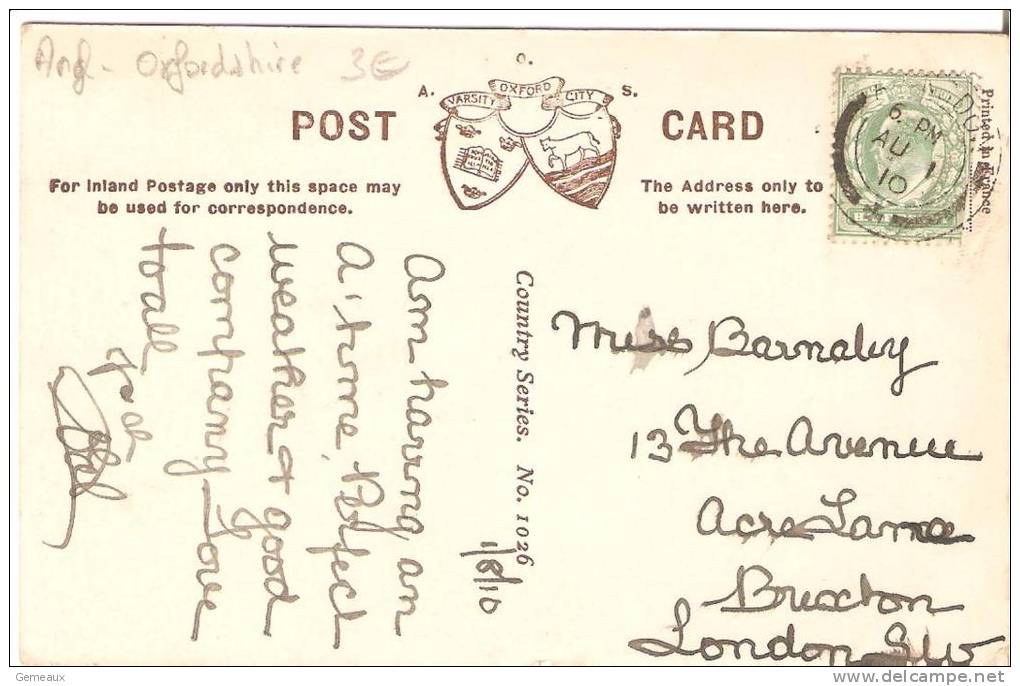 Angl - Oxfordshire 3€
POST CARD
A. O. S.
VARSITY OXFORD CITY
For Inland Postage only this space may
be used for correspondence.
The Address only to
be written here.
6. PM
AU 1
10
Printed in France
Country Series. No. 1026
1/8/10
Am having an
A. 1 time, Perfect
weather & good
company Love
to all
Miss Barnaby
13 The Avenue
Acre Lane
Brixton
London SW
Gemeaux
www.delcampe.net